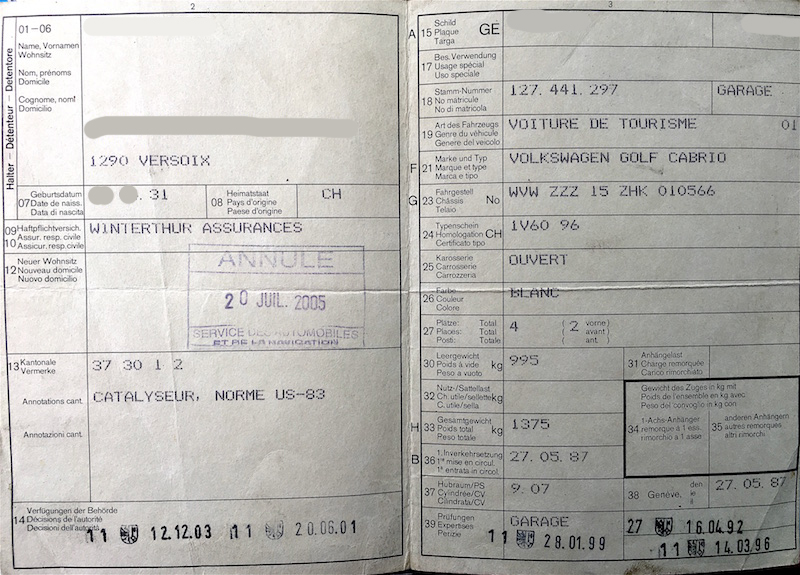 2
Halter – Détenteur – Detentore
01-06
Name, Vornamen
Wohnsitz
Nom, prénoms
Domicile
Cognome, nomi
Domicilio
1290 VERSOIX
07 Geburtsdatum
Date de naiss.
Data di nascita
31
08 Heimatstaat
Pays d'origine
Paese d'origine
CH
09 Haftpflichtversich.
10 Assur. resp. civile
Assicur. resp. civile
WINTERTHUR ASSURANCES
12 Neuer Wohnsitz
Nouveau domicile
Nuovo domicilio
ANNULÉ
20 JUIL. 2005
SERVICE DES AUTOMOBILES
ET DE LA NAVIGATION
13 Kantonale
Vermerke
Annotations cant.
Annotazioni cant.
37 30 1 2
CATALYSEUR, NORME US-83
14 Verfügungen der Behörde
Décisions de l'autorité
Decisioni dell'autorità
11 12.12.03 11 20.06.01
3
A 15 Schild
Plaque
Targa
GE
17 Bes. Verwendung
Usage spécial
Uso speciale
18 Stamm-Nummer
No matricule
No di matricola
127. 441. 297 GARAGE
19 Art des Fahrzeugs
Genre du véhicule
Genere del veicolo
VOITURE DE TOURISME 01
F 21 Marke und Typ
Marque et type
Marca e tipo
VOLKSWAGEN GOLF CABRIO
G 23 Fahrgestell
Châssis No
Telaio
WVW ZZZ 15 ZHK 010566
24 Typenschein
Homologation CH
Certificato tipo
1V60 96
25 Karosserie
Carrosserie
Carrozzeria
OUVERT
26 Farbe
Couleur
Colore
BLANC
27 Plätze: Total
Places: Total
Posti: Totale
4 ( 2 vorne )
( avant )
( ant. )
30 Leergewicht
Poids à vide kg
Peso a vuoto
995
31 Anhängelast
Charge remorquée
Carico rimorchiato
32 Nutz-/Sattellast
Ch. utile/sellette kg
C. utile/sella
H 33 Gesamtgewicht
Poids total kg
Peso totale
1375
Gewicht des Zuges in kg mit
Poids de l'ensemble en kg avec
Peso del convoglio in kg con
34 1-Achs-Anhänger
remorque à 1 ess.
rimorchio a 1 asse
35 anderen Anhängern
autres remorques
altri rimorchi
B 36 1. Inverkehrsetzung
1re mise en circul.
1a entrata in circol.
27. 05. 87
37 Hubraum/PS
Cylindrée/CV
Cilindrata/CV
9. 07
38 Genève, den
le
il
27. 05. 87
39 Prüfungen
Expertises
Perizie
GARAGE
11 28.01.99
27 16.04.92
11 14.03.96